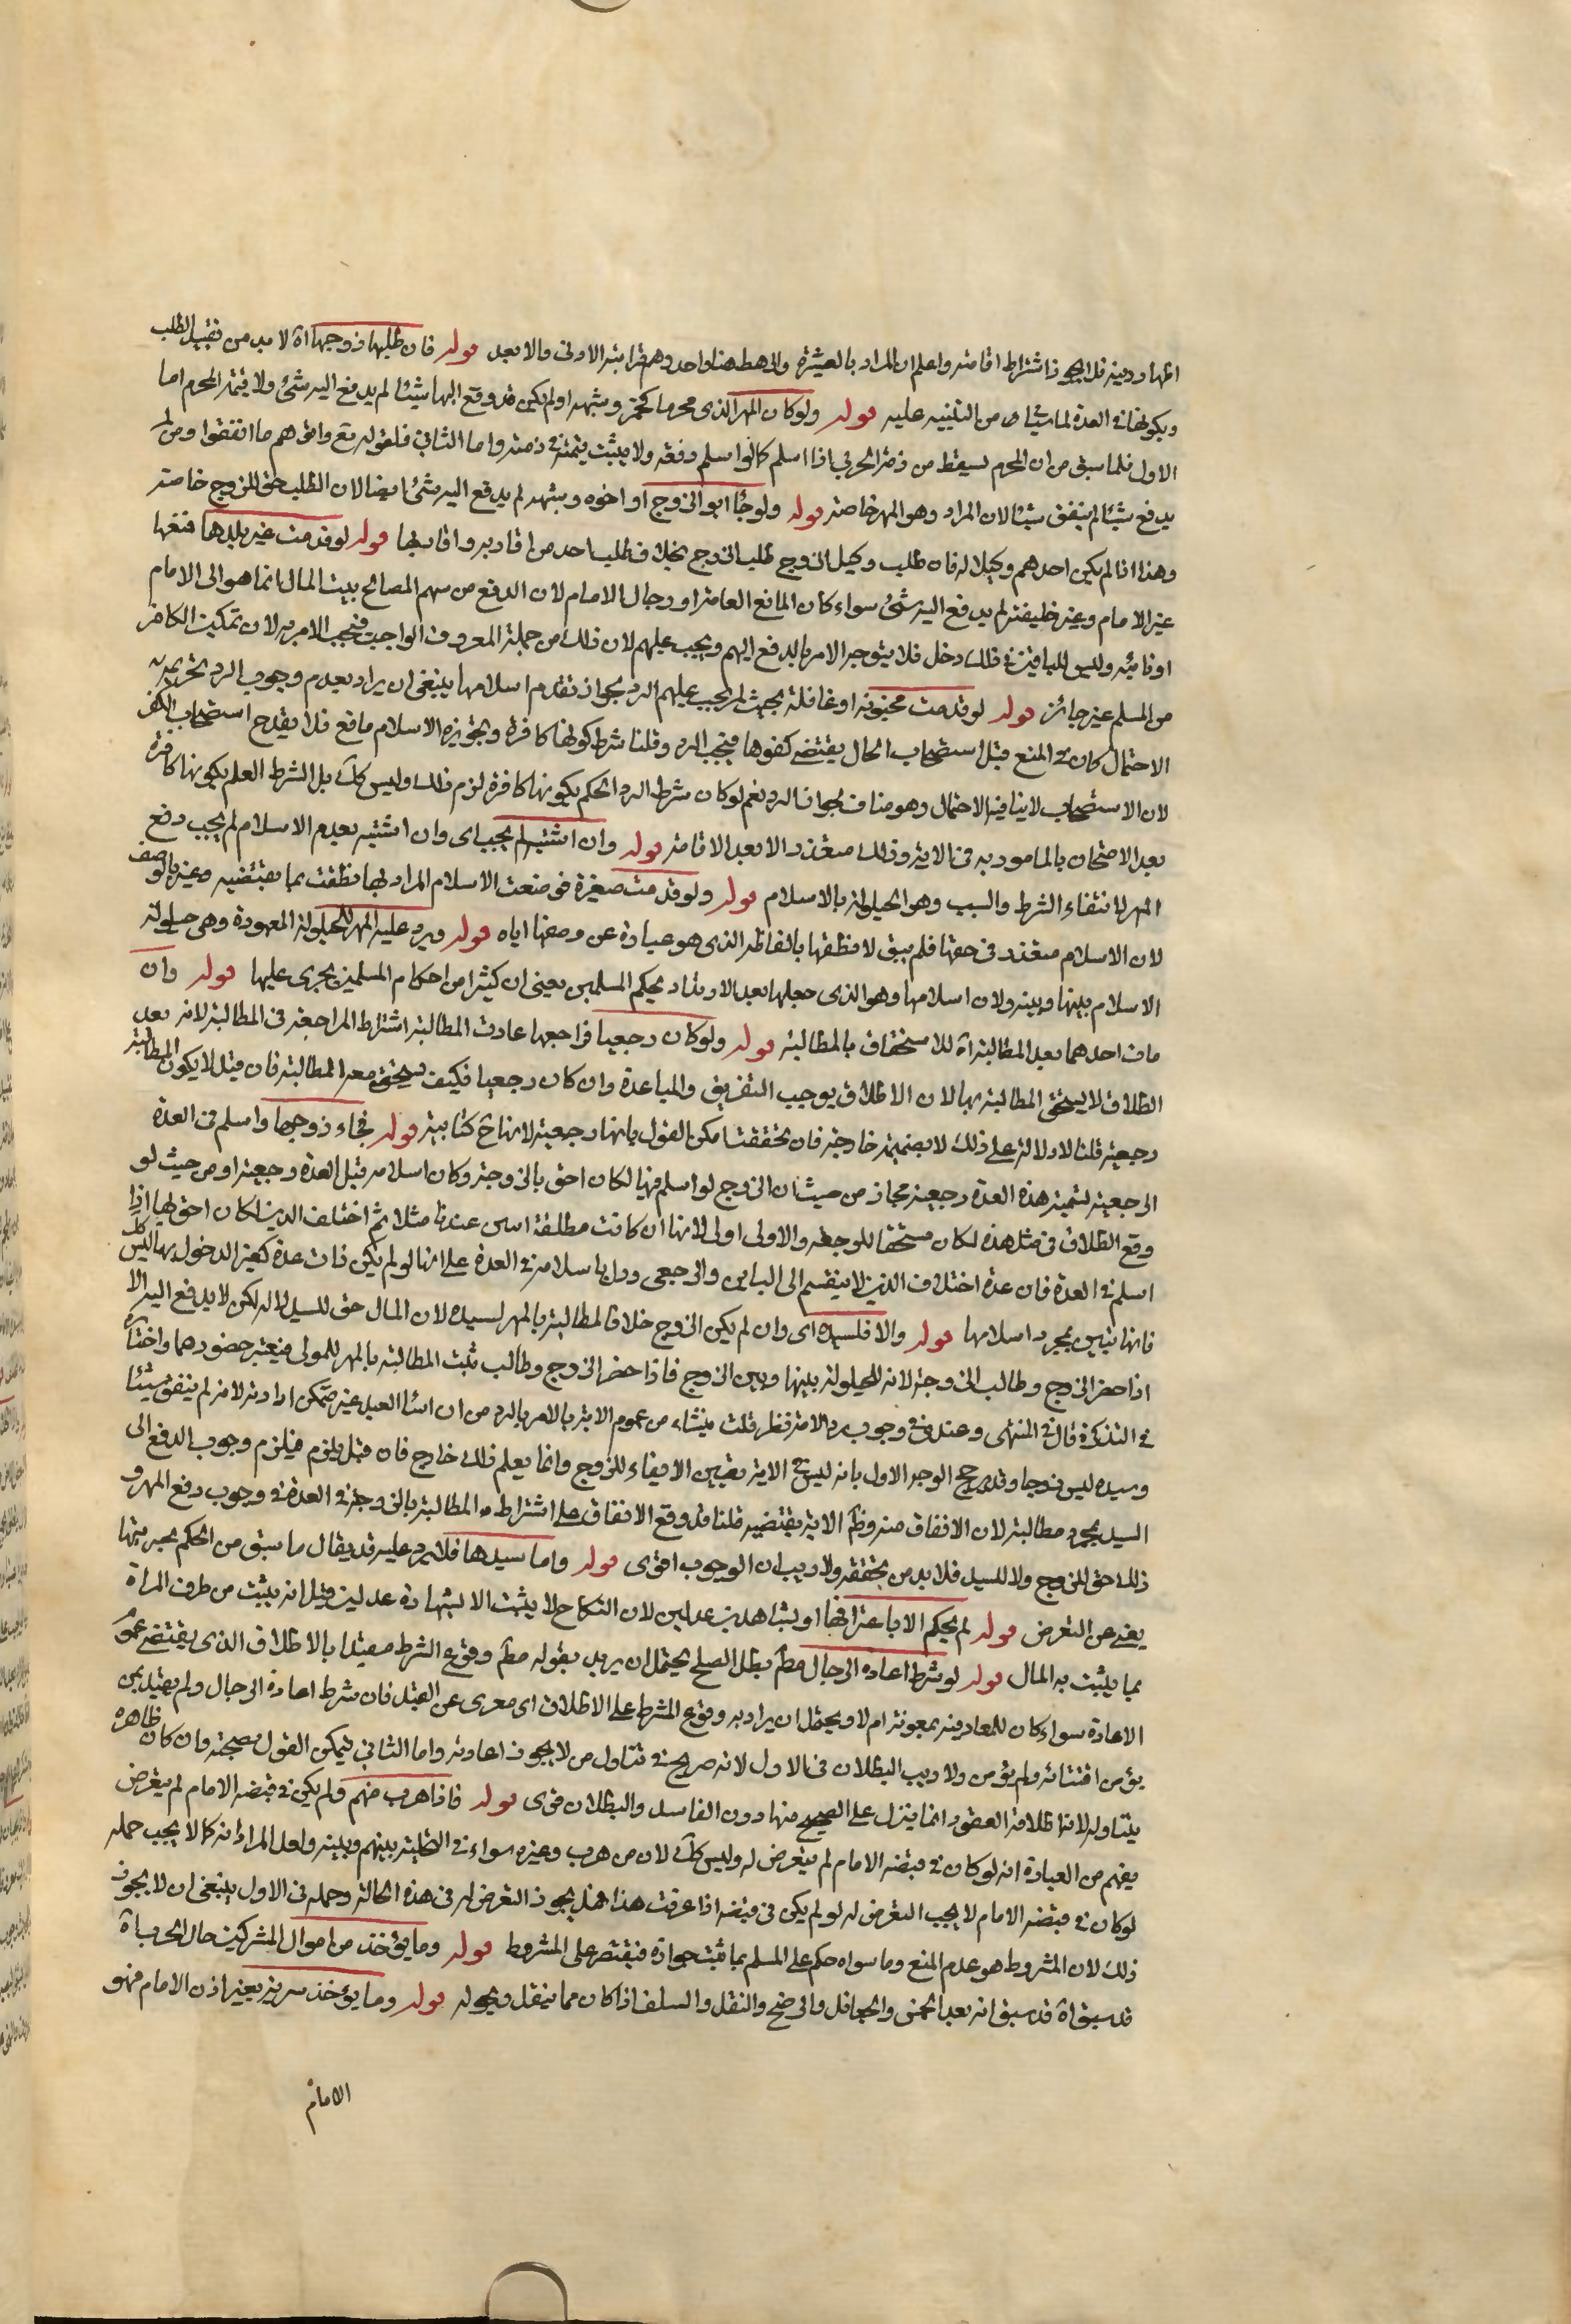 اظهار دينه فلا يجوز اشتراط اقامته واعلم ان المراد بالعشيرة والرهط هنا واحد وهم قرابته الادنى والابعد قوله فان طلبها زوجها اه لا بد من تقييد الطلب
وبكونها في العدة لما سيأتي من التنبيه عليه قوله ولو كان المهر الذي محرما كخمر وشبهه او لم يكن قد وقع اليها شيئا لم يدفع اليه شئ ولا قيمة المحرم اما
الاول فلما سبق من ان المحرم يسقط من ذمة الحربي اذا اسلم كما لو اسلم دفعه ولا يثبت قيمته في ذمته واما الثاني فلقوله تع واتوهم ما انفقوا ومن لم
يدفع شيئا لم ينفق شيئا لان المراد وهو المهر خاصة قوله ولو جاء ابو الزوج او اخوه وشبهه لم يدفع اليه شئ ايضا لان الطلب حق للزوج خاصة
وهذا اذا لم يكن احدهم وكيلا له فان طلب وكيل الزوج طلب الزوج بخلاف طلب احد من اقاربه واقاربها قوله لو قدمت غير بلدها فمنعها
غير الامام وغير خليفته لم يدفع اليه شئ سواء كان المانع العامة او رجال الامام لان الدفع من سهم المصالح ببيت المال انما هو الى الامام
او نائبه وليس للباقين في ذلك دخل فلا يتوجه الامر بالدفع اليهم ويجب عليهم لان ذلك من جملة المعروف الواجب فيجب الامر به لان تمكين الكافر
من المسلم غير جائز قوله لو قدمت مجنونة او غافلة بحيث لم يجب عليهم الرد لجواز تقدم اسلامها ينبغي ان يراد بعدم وجوب الرد تحريمه
الاحتمال كان في المنع قيل استصحاب الحال يقتضي كفرها فيجب الرد وقلنا شرط كونها كافرة وتجويز الاسلام مانع فلا يقدح استصحاب الكفر
لان الاستصحاب لا ينافيه الاحتمال وهو مناف لجواز الرد نعم لو كان شرط الرد الحكم بكونها كافرة لزم ذلك وليس كك بل الشرط العلم بكونها كافرة
بعد الامتحان بالمامور به في الاية وذلك متعذر الا بعد الاقامة قوله وان اشتبه لم يجب اي وان اشتبه بعدم الاسلام لم يجب دفع
المهر لانتفاء الشرط والسبب وهو الحيلولة بالاسلام قوله ولو قدمت صغيرة فوصفت الاسلام المراد بها نطقت بما يقتضيه وعبر بالوصف
لان الاسلام متعذر في حقها فلم يبق الا نطقها بالفاظه الذي هو عبارة عن وصفها اياه قوله ويرد عليه المهر للحيلولة المعهودة وهي حيلولة
الاسلام بينها وبينه ولان اسلامها وهو الذي جعلها بعد الارتداد بحكم المسلمين يعني ان كثيرا من احكام المسلمين يجري عليها قوله وان
مات احدهما بعد المطالبة اه للاستحقاق بالمطالبة قوله ولو كان رجعيا فراجعها عادت المطالبة اشتراط المراجعة في المطالبة لانه بعد
الطلاق لا يستحق المطالبة بها لان الاطلاق يوجب التفريق والمباعدة وان كان رجعيا فكيف يستحق معه المطالبة فان قيل لا يكون المطالبة
رجعية قلنا لا دلالة على ذلك لا بضميمة خارجة فان تحققت امكن القول بانها رجعية لا نكاح كتابية قوله فجاء زوجها واسلم في العدة
الرجعية لتسمية هذه العدة رجعية مجاز من حيث ان الزوج لو اسلم فيها لكان احق بالزوجة وكان اسلامه قبل العدة رجعية او من حيث لو
وقع الطلاق في مثل هذه لكان مستحقا للرجعة والاولى اولى لانها ان كانت مطلقة امس عندنا مثلا ثم اختلف الدين لكان احق بها اذا
اسلم في العدة فان عدة اختلاف الدين لا ينقسم الى البائن والرجعي وراى باسلامه في العدة على انها لو لم يكن ذات عدة كغير الدخول بها ليس كك
فانها تبين بمجرد اسلامها قوله والا فلسيده اي وان لم يكن الزوج خلافا لمطالبة بالمهر لسيده لان المال حق للسيد لا له لكن لا يدفع اليه الا
اذا حضر الزوج وطالب الزوجة لانه للحيلولة بينها وبين الزوج فاذا حضر الزوج وطالب ثبت المطالبة بالمهر للمولى فيعتبر حضورهما واختاره
في التذكرة قال في المنتهى وعندي في وجوب رد الامة نظر قلت ينشاء من عموم الاية بالامر بالرد من ان انشاء العبد غير متمكن ارادته لانه لم ينفق شيئا
وسيده ليس زوجا وقد رجح الوجه الاول بانه ليس في الاية تعيين الايفاء للزوج وانما يعلم ذلك خارج فان قيل يلزم فيلزم وجوب الدفع الى
السيد بمجرد مطالبته لان الانفاق منه وظاهر الاية يقتضيه قلنا قد وقع الاتفاق على اشتراط المطالبة بالزوجة في العدة في وجوب دفع المهر و
ذلك حق للزوج ولا للسيد فلا بد من تحققه ولا ريب ان الوجوب اقوى قوله واما سيدها فلا يرد عليه قد يقال ما سبق من الحكم بحريتها
يغني عن التعرض قوله لم يحكم الا باعترافها او بشاهدين عدلين لان النكاح لا يثبت الا بشهادة عدلين وقيل انه يثبت من طرف المراة
بما يثبت به المال قوله لو شرط اعادة الرجال مطلقا بطل الصلح يحتمل ان يريد بقوله مطلقا وقوع الشرط مقيدا بالاطلاق الذي يقتضي عموم
الاعادة سواء كان للمعاد فيه بمعونة ام لا ويحتمل ان يراد به وقوع الشرط على الاطلاق اي معرى عن القيد فان شرط اعادة الرجال ولم يقيد بمن
يؤمن افتتانه ولم يؤمن ولا ريب البطلان في الاول لانه صريح في تناول من لا يجوز اعادته واما الثاني فيمكن القول بصحته وان كان ظاهره
يتناوله لانه اطلاق العقود انما ينزل على الصحيح منها دون الفاسد والبطلان قوى قوله فاذا هرب منهم ولم يكن في قبضه الامام لم يتعرض
يفهم من العبارة انه لو كان في قبضه الامام لم يتعرض له وليس كك لان من هرب وغيره سواء في التخلية بينهم وبينه ولعل المراد انه كما لا يجب حمله
لو كان في قبضه الامام لا يجب التعرض له لو لم يكن في قبضه اذا عرفت هذا فهل يجوز التعرض له في هذه الحالة وحمله في الاول ينبغي ان لا يجوز
ذلك لان المشروط هو عدم المنع وما سواه حكم على المسلم بما ثبت جوازه فيقتصر على المشروط قوله وما يؤخذ من اموال المشركين حال الحرب اه
قد سبق اه قد سبق انه بعد الخمس والجعائل والرضخ والنفل والسلف اذا كان مما ينقل ويحول قوله وما يؤخذ سرية بغير اذن الامام فهو
الامام